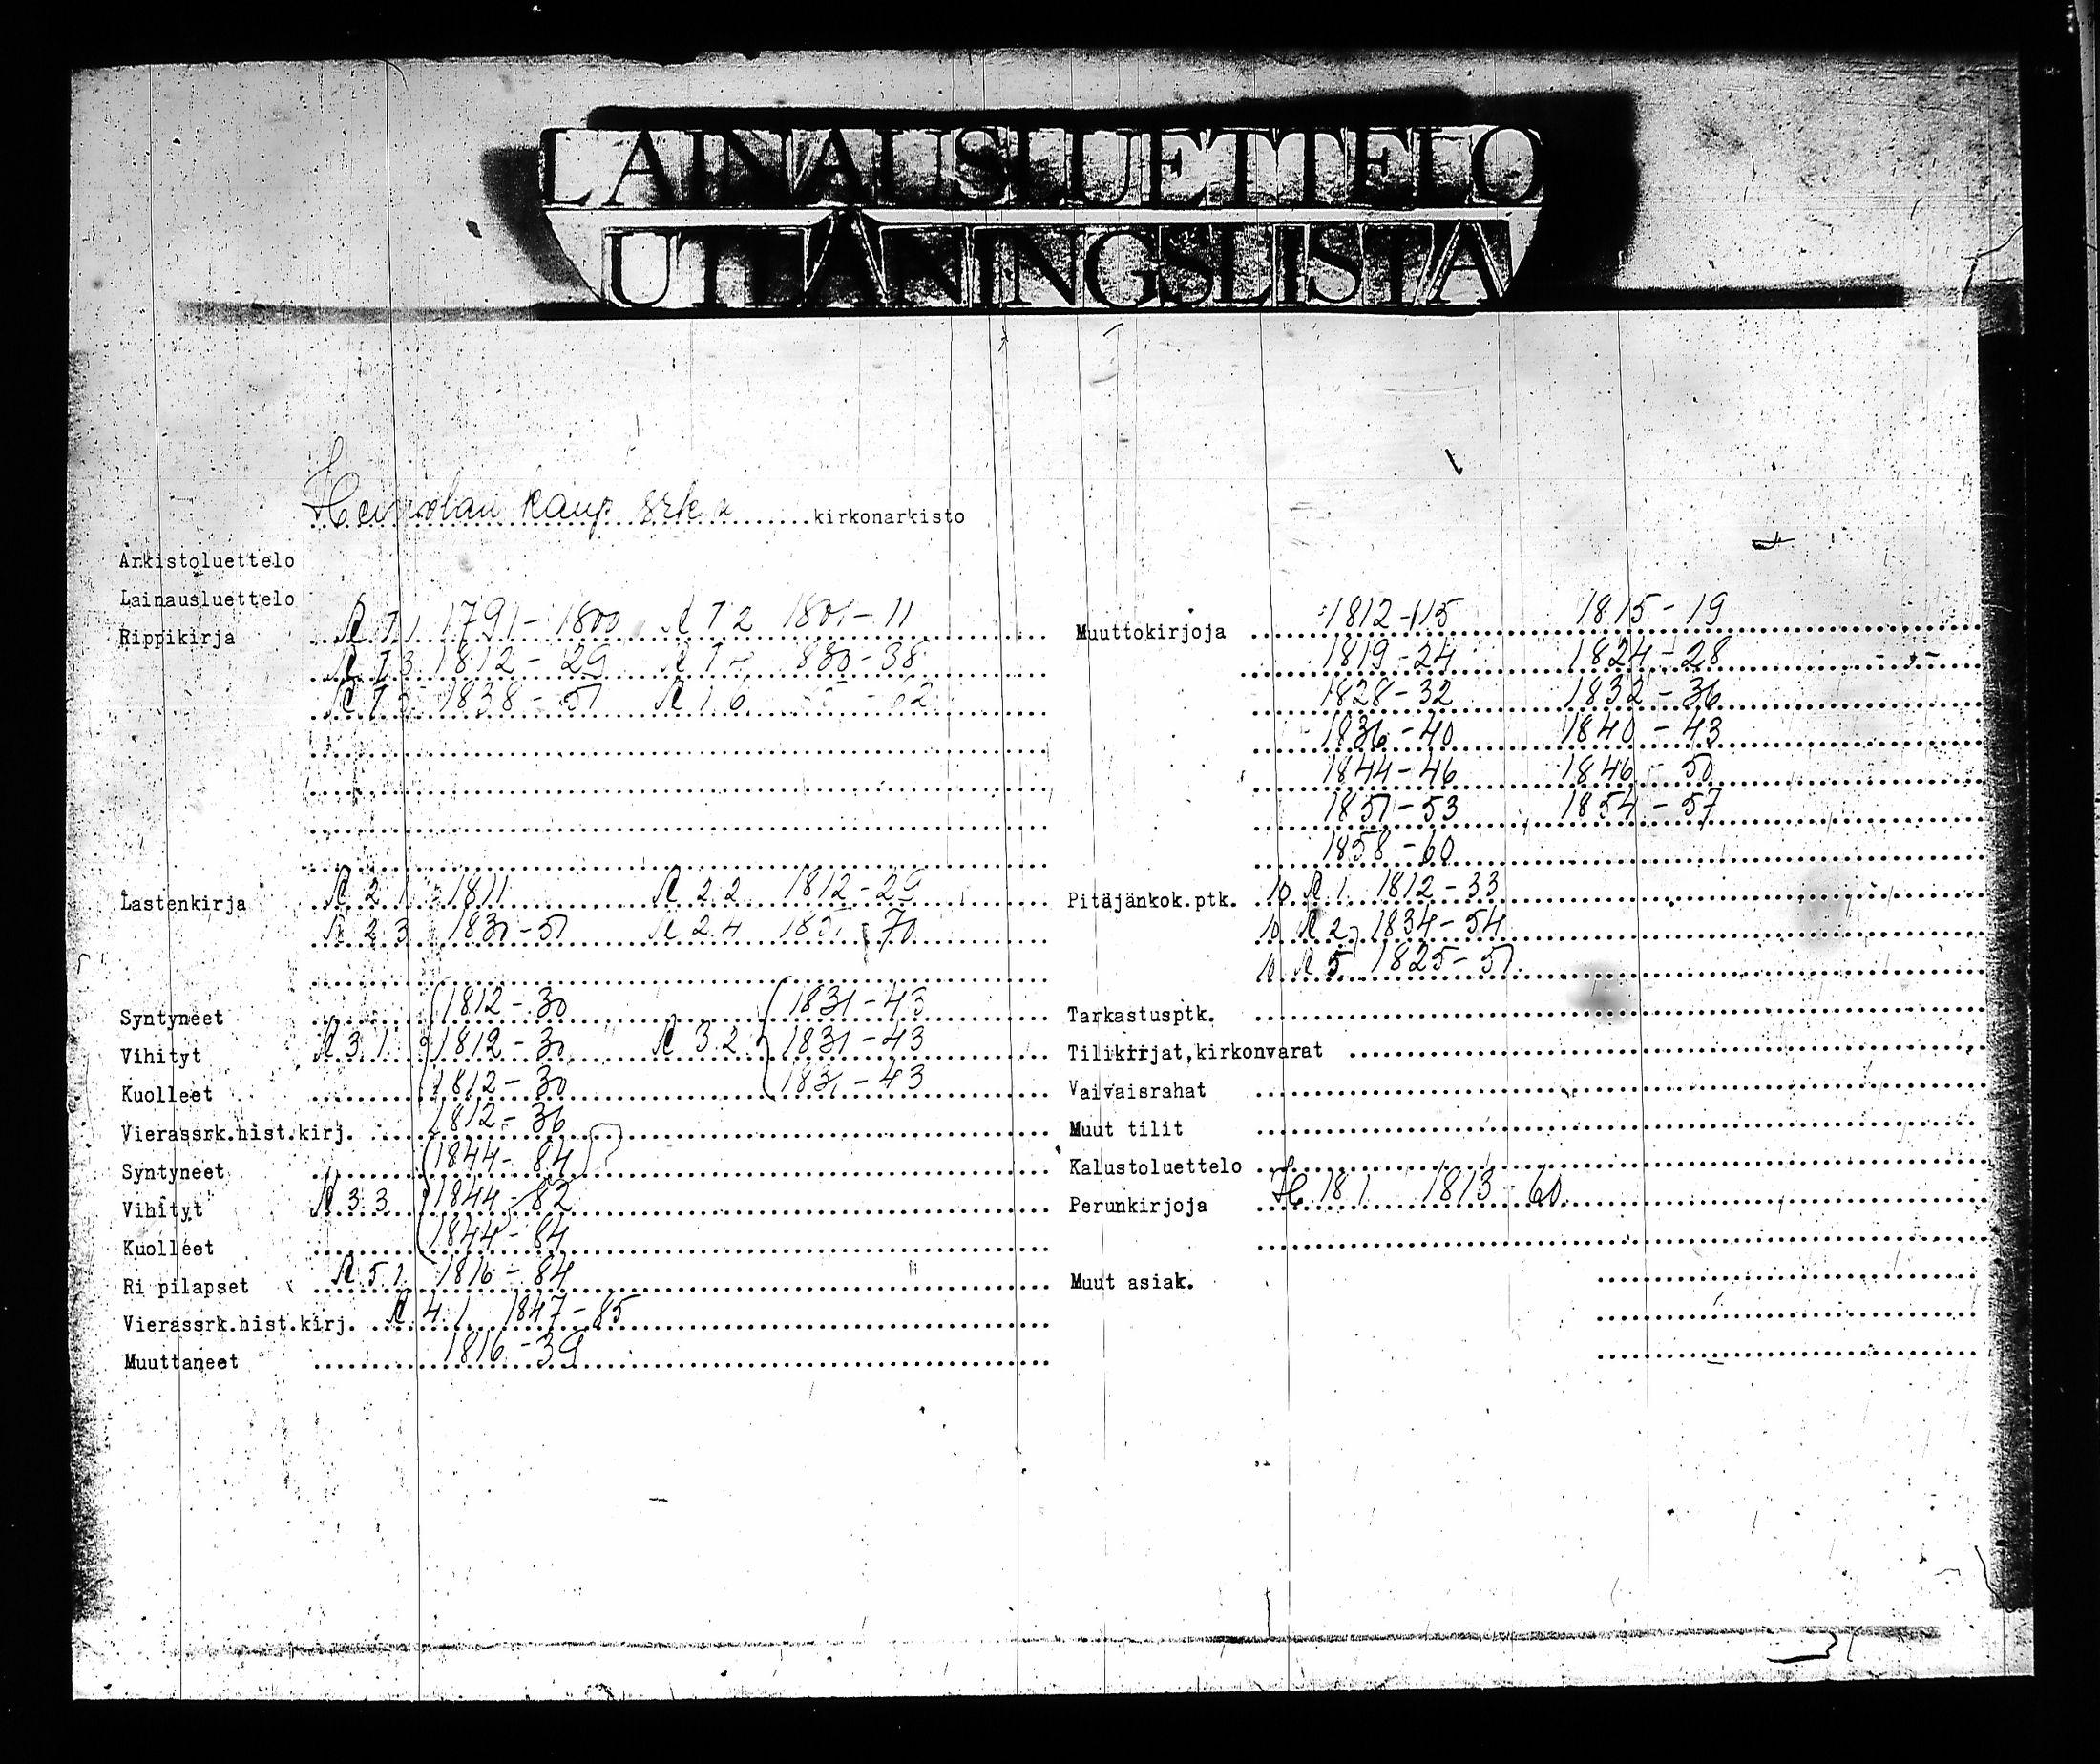 LAINAUSLUETTELO
UTLÅNINGSLISTA
Heinolan kaup. srk:n kirkonarkisto
Arkistoluettelo
Lainausluettelo
Rippikirja R 1.1 1791-1800 R 1 2 1801-11
R 1 3 1812-29 R 1 1830-38
R 1 5 1838-51 R 1 6 -62
Lastenkirja R 2.1 -1811 R 2.2 1812-29
R 2.3 1831-51 R 2.4 185 -70
Syntyneet 1812-30 1831-43
Vihityt R 3.1. 1812-30 R 3.2. 1831-43
Kuolleet 1812-30 1831-43
Vierassrk.hist.kirj. 1812-36
Syntyneet 1844-84
Vihityt R 3.3 1844-82
Kuolleet 1844-84
Ri pilapset R.5.1. 1816-84
Vierassrk.hist.kirj. R.4.1 1847-85
Muuttaneet 1816-39
Muuttokirjoja 1812-15 1815-19
1819-24 1824-28
1828-32 1832-36
1836-40 1840-43
1844-46 1846-50
1851-53 1854-57
1858-60
Pitäjänkok.ptk. R 1. 1812-33
R 2 1834-54
R 5 1825-51
Tarkastusptk.
Tilikirjat,kirkonvarat
Vaivaisrahat
Muut tilit
Kalustoluettelo
Perunkirjoja 1813-60
Muut asiak.